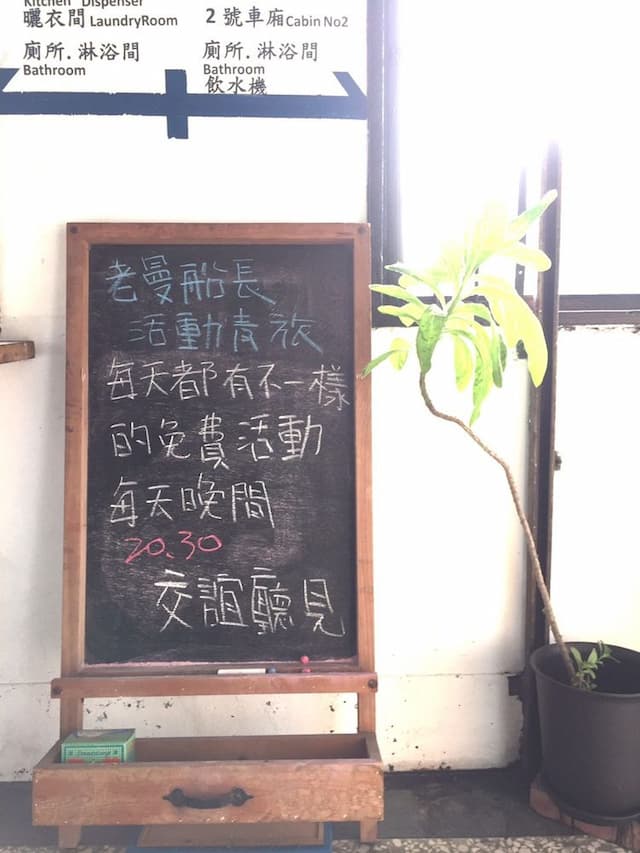 Kitchen Dispenser
曬衣間 LaundryRoom
廁所.淋浴間
Bathroom
2 號車廂 Cabin No2
廁所.淋浴間
Bathroom
飲水機
老曼船長
活動青旅
每天都有不一樣
的免費活動
每天晚間
20.30
交誼廳見